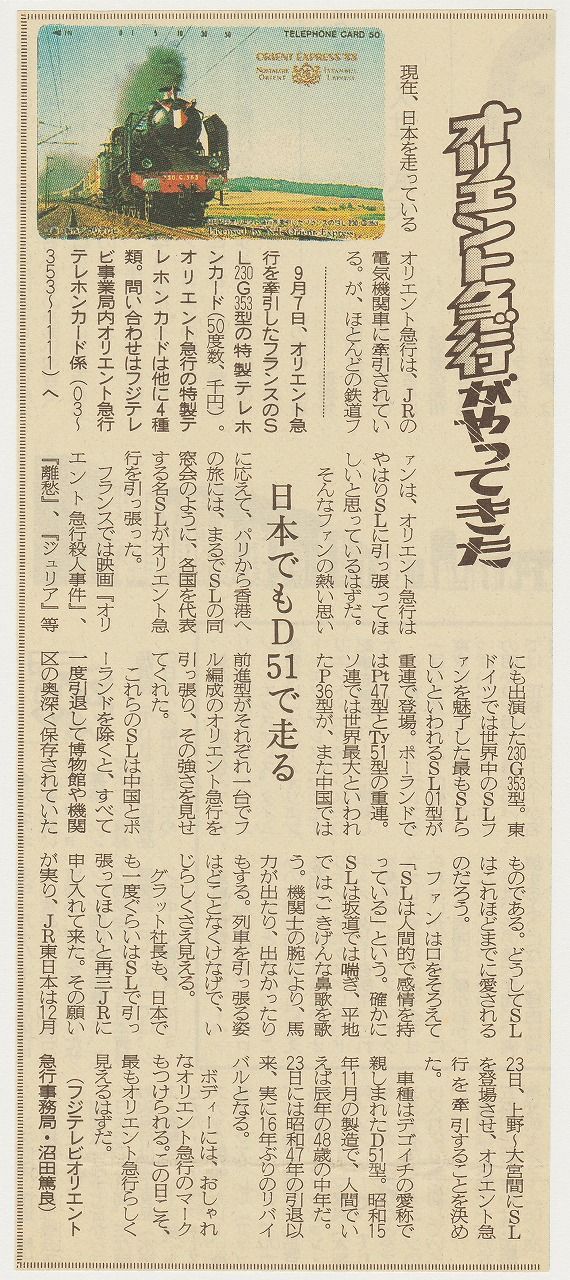 オリエント急行がやってきた
IN 0 1 5 10 30 50
TELEPHONE CARD 50
ORIENT EXPRESS '88
NOSTALGIE ISTANBUL
ORIENT EXPRESS
230.G.353
Licensed by N.I. Orient Express
現在、日本を走っている
オリエント急行は、JRの
電気機関車に牽引されてい
る。が、ほとんどの鉄道フ
9月7日、オリエント急
行を牽引したフランスのS
L230G353型の特製テレホ
ンカード(50度数、千円)。
オリエント急行の特製テ
レホンカードは他に4種
類。問い合わせはフジテレ
ビ事業局内オリエント急行
テレホンカード係(03〜
353〜1111)へ
ァンは、オリエント急行は
やはりSLに引っ張ってほ
しいと思っているはずだ。
そんなファンの熱い思い
日本でもD51で走る
に応えて、パリから香港へ
の旅には、まるでSLの同
窓会のように、各国を代表
する名SLがオリエント急
行を引っ張った。
フランスでは映画『オリ
エント急行殺人事件』、
『離愁』『ジュリア』等
にも出演した230G353型。東
ドイツでは世界中のSLフ
ァンを魅了した最もSLら
しいといわれるSL01型が
重連で登場。ポーランドで
はPt47型とTy51型の重連。
ソ連では世界最大といわれ
たP36型が、また中国では
前進型がそれぞれ一台でフ
ル編成のオリエント急行を
引っ張り、その強さを見せ
てくれた。
これらのSLは中国とポ
ーランドを除くと、すべて
一度引退して博物館や機関
区の奥深く保存されていた
ものである。どうしてSL
はこれほどまでに愛される
のだろう。
ファンは口をそろえて
「SLは人間的で感情を持
っている」という。確かに
SLは坂道では喘ぎ、平地
ではごきげんな鼻歌を歌
う。機関士の腕により、馬
力が出たり、出なかったり
もする。列車を引っ張る姿
はどことなくけなげで、い
じらしくさえ見える。
グラット社長も、日本で
も一度ぐらいはSLで引っ
張ってほしいと再三JRに
申し入れて来た。その願い
が実り、JR東日本は12月
23日、上野〜大宮間にSL
を登場させ、オリエント急
行を牽引することを決め
た。
車種はデゴイチの愛称で
親しまれたD51型。昭和15
年11月の製造で、人間でい
えば辰年の48歳の中年だ。
23日には昭和47年の引退以
来、実に16年ぶりのリバイ
バルとなる。
ボディーには、おしゃれ
なオリエント急行のマーク
もつけられる。この日こそ、
最もオリエント急行らしく
見えるはずだ。
(フジテレビオリエント
急行事務局・沼田篤良)